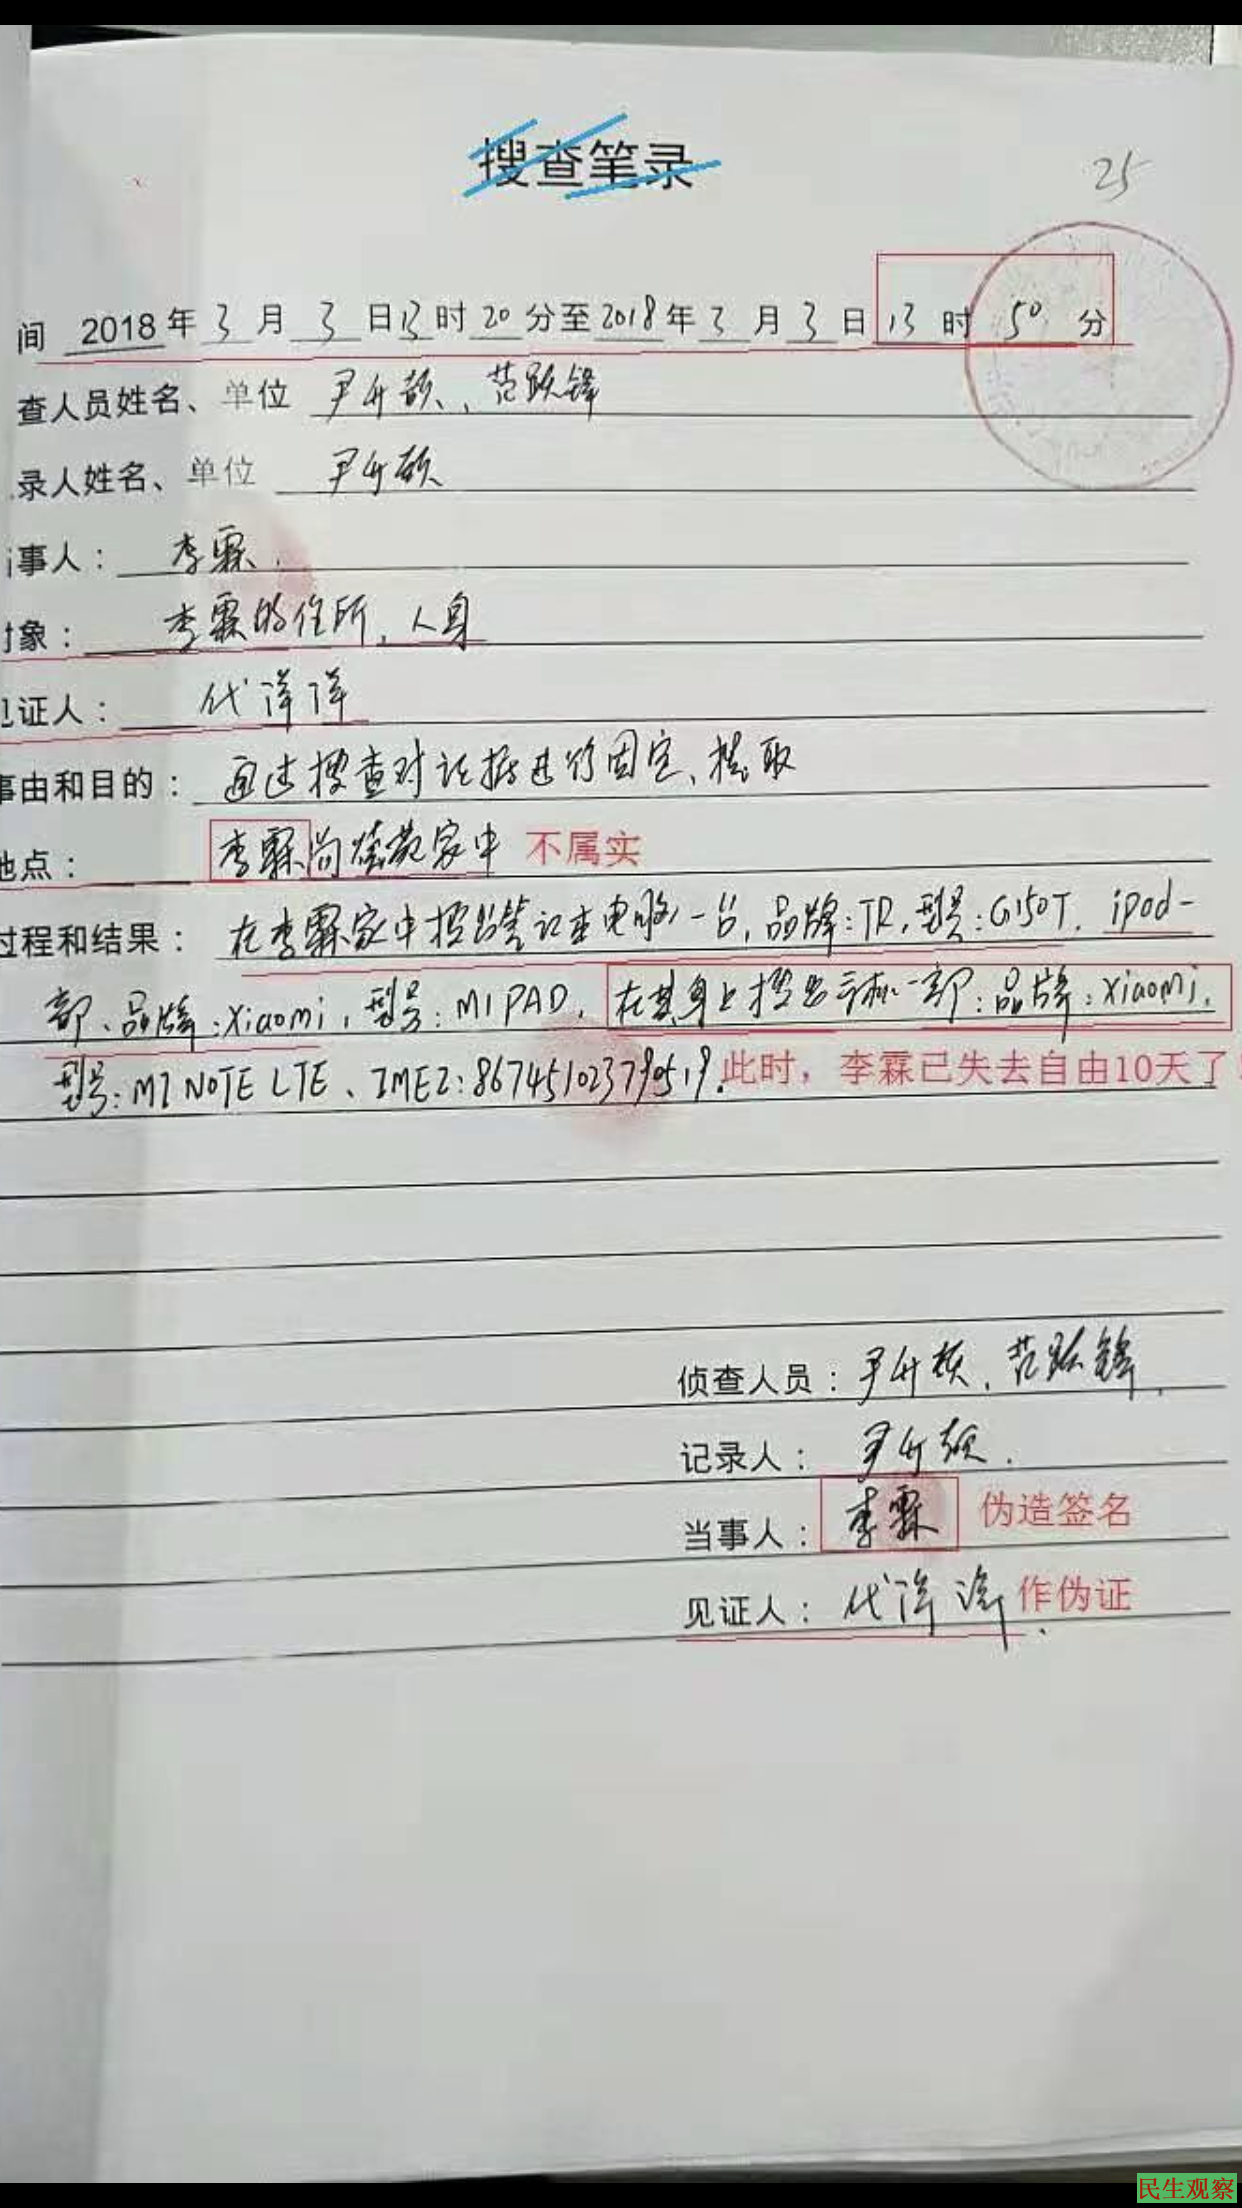 搜查笔录
25
间 2018年3月3日13时20分至2018年3月3日13时50分
查人员姓名、单位 尹升颏、范跃锋
录人姓名、单位 尹升颏
事人： 李霖.
象： 李霖的住所、人身
证人： 代洋洋
事由和目的： 通过搜查对证据进行固定、提取
地点： 李霖家中 不属实
过程和结果： 在李霖家中搜出笔记本电脑一台,品牌:TR,型号:G150T, ipod一
部、品牌:Xiaomi,型号:MIPAD,在其身上搜出手机一部:品牌:Xiaomi,
型号:MI NOTE LTE、IMEI:867451023790519.此时，李霖已失去自由10天了！
侦查人员：尹升颏、范跃锋
记录人： 尹升颏.
当事人： 李霖 伪造签名
见证人： 代洋洋 作伪证
民生观察